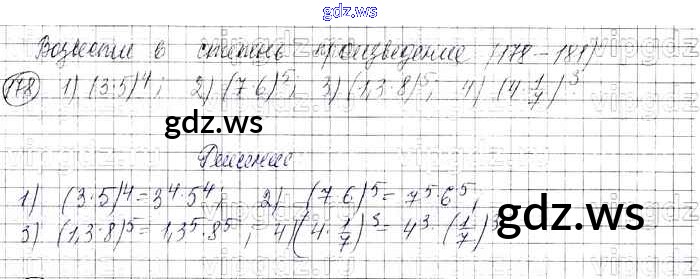 gdz.ws
Возвести в степень произведение (178-181)
178 1) (3·5)^4; 2) (7·6)^5; 3) (1,3·8)^5; 4) (4·1/7)^3
gdz.ws
Решение
1) (3·5)^4=3^4·5^4; 2) (7·6)^5=7^5·6^5;
3) (1,3·8)^5=1,3^5·8^5; 4) (4·1/7)^3=4^3·(1/7)^3
gdz.ws